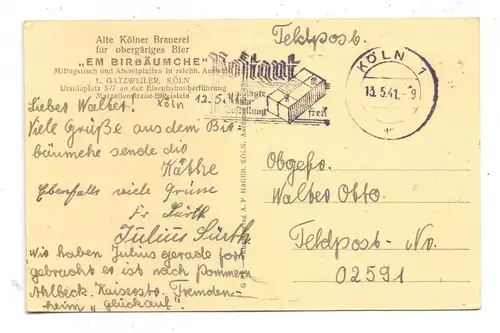 Alte Kölner Brauerei
für obergäriges Bier
„EM BIRBÄUMCHE"
Mittagstisch und Abendplatten in reichh. Auswahl
L. GATZWEILER, KÖLN
Ursulaplatz 5/7 an der Eisenbahnüberführung
Köln
12.5.41
Lieber Walter!
Viele Grüße aus dem Bir-
bäumche sende die
Käthe
Ebenfalls viele Grüsse
Fr Sürth
Julius Sürth
Wir haben Julius gerade fort
gebracht es ist nach Pommern
Ahlbeck. Kaiserstr. Fremden-
heim „Glückauf"
A. F. HAGER, KÖLN
Postgut
frei
Feldpost.
KÖLN 1
13.5.41.-9
Obgefr.
Walter Otto.
Feldpost-No.
02591